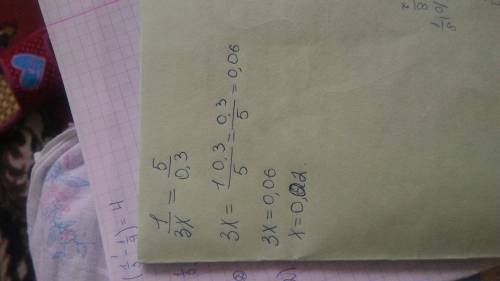 1/3x = 5/0,3
3x = 1·0,3/5 = 0,3/5 = 0,06
3x = 0,06
x = 0,02.
(1/3 - 1/9) = 4